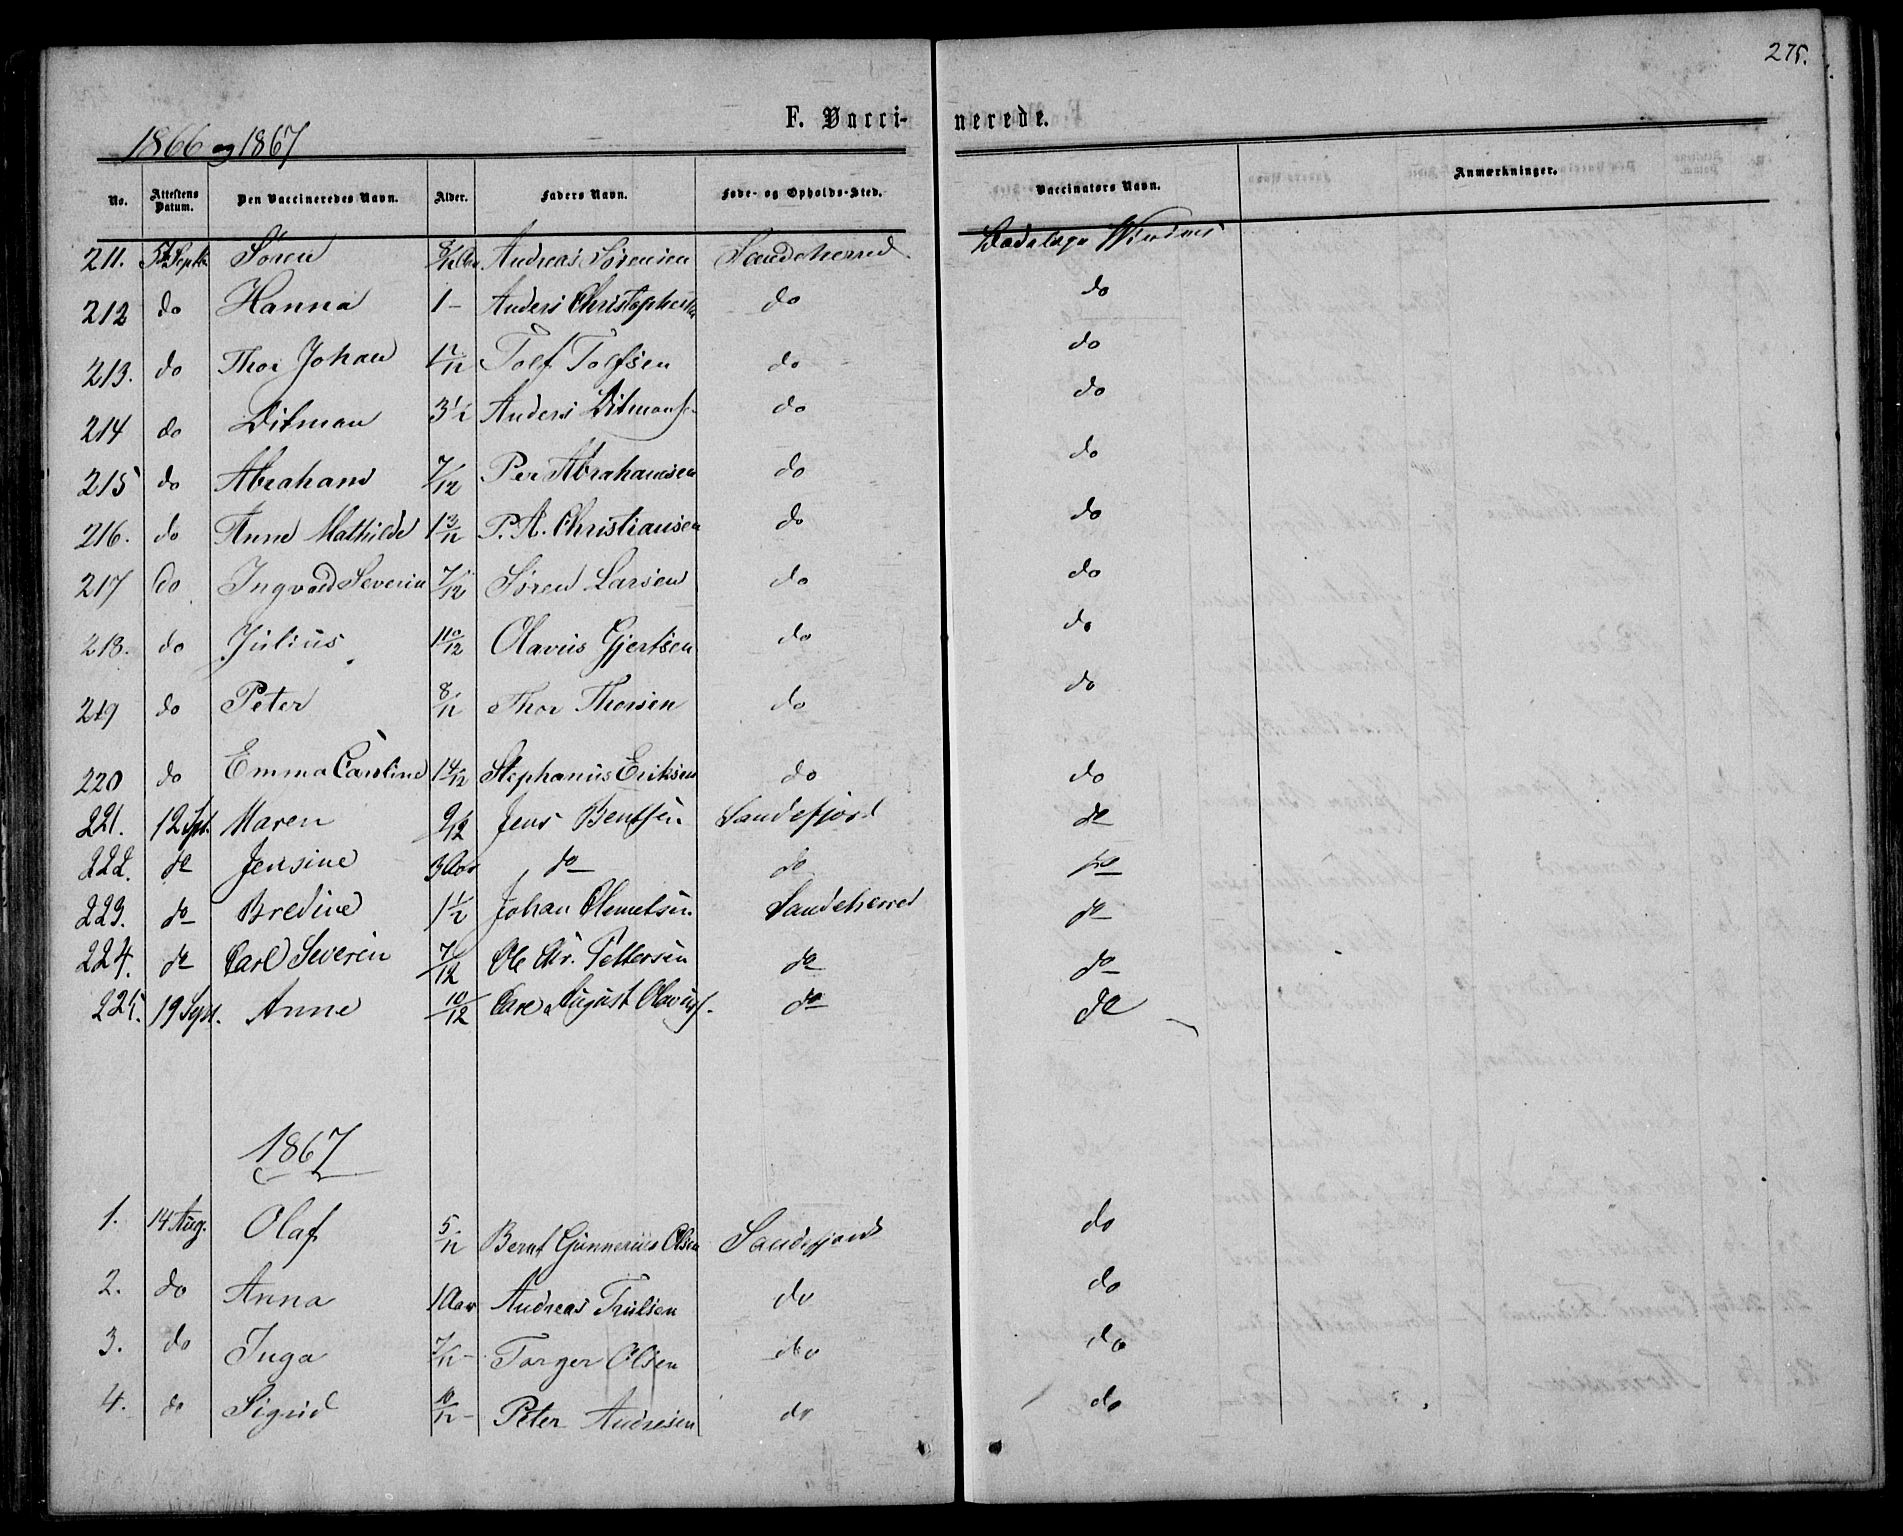 275.
F. Vacci- nerede.
1866 og 1867
No. Attestens Datum. Den Vaccineredes Navn. Alder. Faders Navn. Føde- og Opholds-Sted. Vaccinators Navn. Anmærkninger.
211. 5 Septb Søren Andreas Sørensen Sandeherred
212 do Hanna 1 - Anders Christophersen do do
213. do Thor Johan 1 Tolf Tolfsen do do
214 do Ditman 3½ Anders Ditmans. do do
215 do Abraham 7/12 Per Abrahamsen do do
216. do Anne Mathilde 1 3/12 P. A. Christiansen do do
217 do Ingvald Severin 7/12 Søren Larsen do do
218. do Julius 1 10/12 Olavus Gjertsen do do
219 do Peter 8/12 Thor Thorsen do do
220 do Emma Caroline 1 4/12 Stephanus Eriksen do do
221. 12 Spt. Maren 9/12 Jens Bentsen Sandefjord do
222. do Jensine 3 Aar do do do
223. do Bredine 1½ Johan Clemetsen Sandeherred do
224. do Carl Severin 7/12 Ole Chr. Pettersen do do
225. 19 Sept. Anne 10/12 Carl August Olavus. do do
1867
1. 14 Aug. Olaf 5/12 Bernt Gunnerius Olsen Sandefjord do
2. do Anna 1 Aar Andreas Trulsen do do
3. do Inga 7/12 - Torger Olsen do do
4. do Sigrid 10/12 - Peter Andresen do do